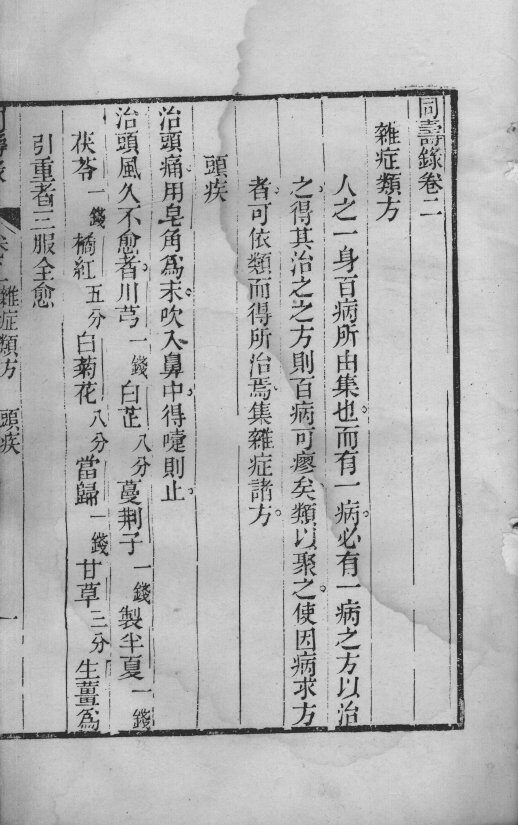 同壽錄卷二
雜症類方
人之一身百病所由集也而有一病必有一病之方以治
之得其治之之方則百病可瘳矣類以聚之使因病求方
者可依類而得所治焉集雜症諸方
頭疾
治頭痛用皁角為末吹入鼻中得嚏則止
治頭風久不愈者川芎一錢白芷八分蔓荆子一錢製半夏一錢
茯苓一錢橘紅五分白菊花八分當歸一錢甘草三分生薑為
引重者三服全愈
雜症類方 頭疾 一